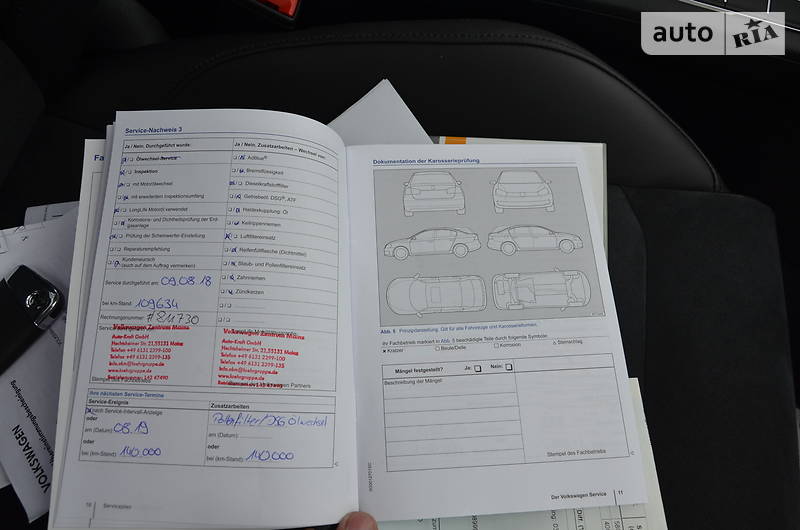 auto RIA
Service-Nachweis 3
Ja / Nein, Durchgeführt wurde:
Ja / Nein, Zusatzarbeiten – Wechsel von:
Ölwechsel-Service
Inspektion
mit Motorölwechsel
mit erweitertem Inspektionsumfang
LongLife Motoröl verwendet
Korrosions- und Dichtheitsprüfung der Erd-
gasanlage
Prüfung der Scheinwerfer-Einstellung
Reparaturempfehlung
Kundenwunsch
(auch auf dem Auftrag vermerken)
AdBlue®
Bremsflüssigkeit
Dieselkraftstofffilter
Getriebeöl: DSG®, ATF
Haldexkupplung: Öl
Keilrippenriemen
Luftfiltereinsatz
Reifenfüllflasche (Dichtmittel)
Staub- und Pollenfiltereinsatz
Zahnriemen
Zündkerzen
Service durchgeführt am: 09.08.18
bei km-Stand: 109634
Rechnungsnummer: #811730
Volkswagen Zentrum Mainz
Auto-Kraft GmbH
Hechtsheimer Str. 23, 55131 Mainz
Telefon +49 6131 2399-100
Telefax +49 6131 2399-135
Stempel des Fachbetriebs
Volkswagen Zentrum Mainz
Auto-Kraft GmbH
Hechtsheimer Str. 23, 55131 Mainz
Telefon +49 6131 2399-100
Telefax +49 6131 2399-135
Partners
Ihre nächsten Service-Termine
Service-Ereignis
Zusatzarbeiten
nach Service-Intervall-Anzeige
Pollenfilter/DSG Ölwechsel
oder
am (Datum): 08.19
am (Datum):
oder
oder
bei (km-Stand): 140.000
bei (km-Stand): 140.000
Serviceplan
Dokumentation der Karosserieprüfung
Abb. 5 Prinzipdarstellung: Gilt für alle Fahrzeuge und Karosserieformen.
Ihr Fachbetrieb markiert in Abb. 5 beschädigte Teile durch folgende Symbole:
× Kratzer
□ Beule/Delle
Korrosion
△ Steinschlag
Mängel festgestellt? Ja: Nein:
Beschreibung der Mängel:
Stempel des Fachbetriebs
Der Volkswagen Service 11
VOLKSWAGEN